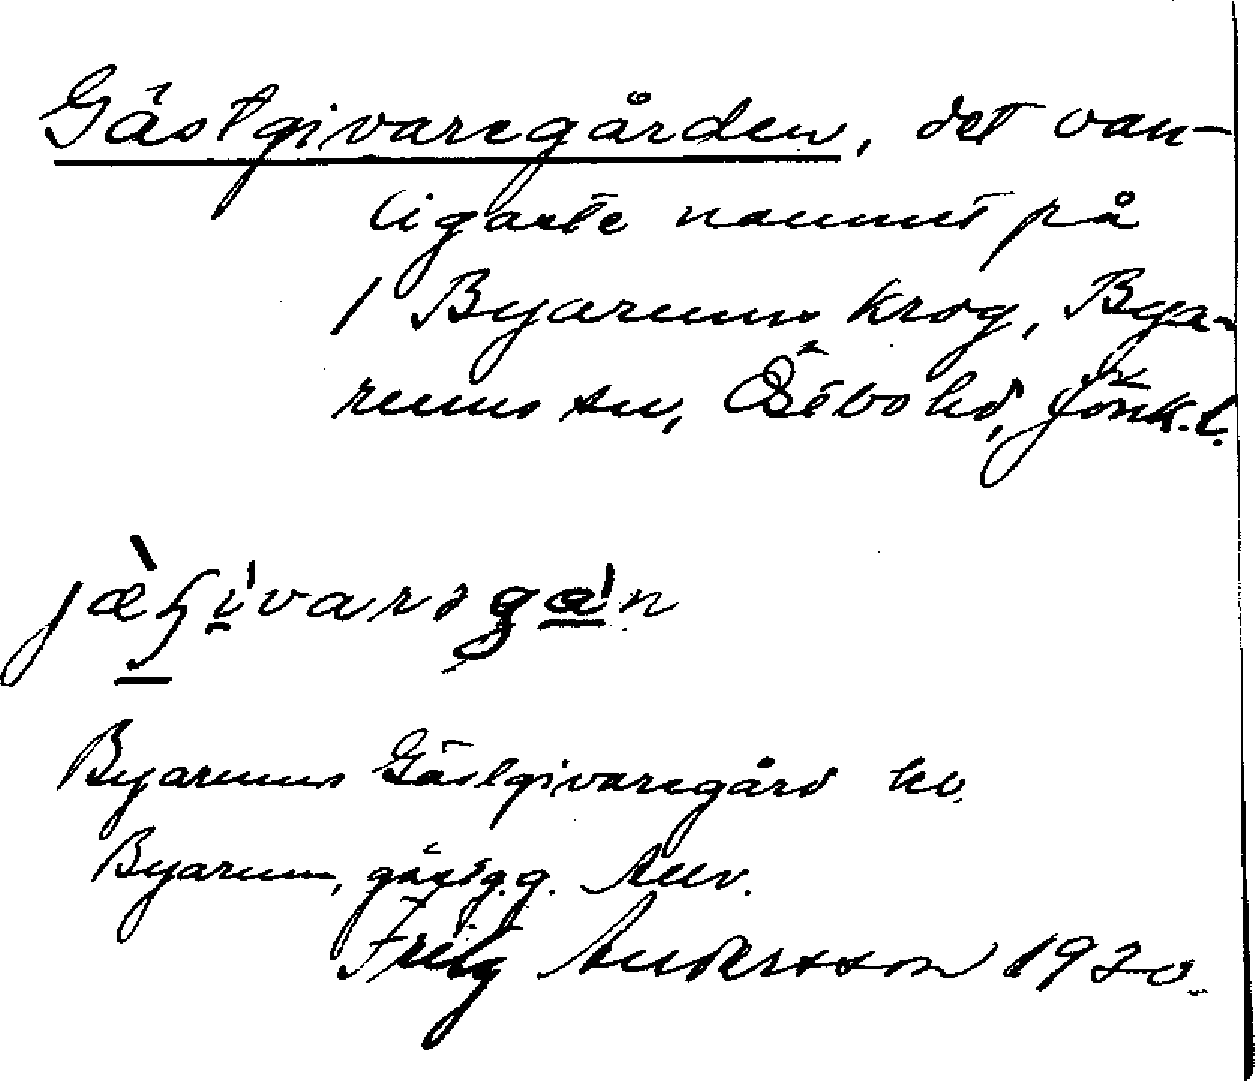 Gästgivaregården, det van-
ligaste namnet på
1 Byarums krog, Bya-
rums sn, Östbo hd, Jönk. l.
Byarums Gästgivaregård
Byarum, gästg.g.
Andersson 1920.